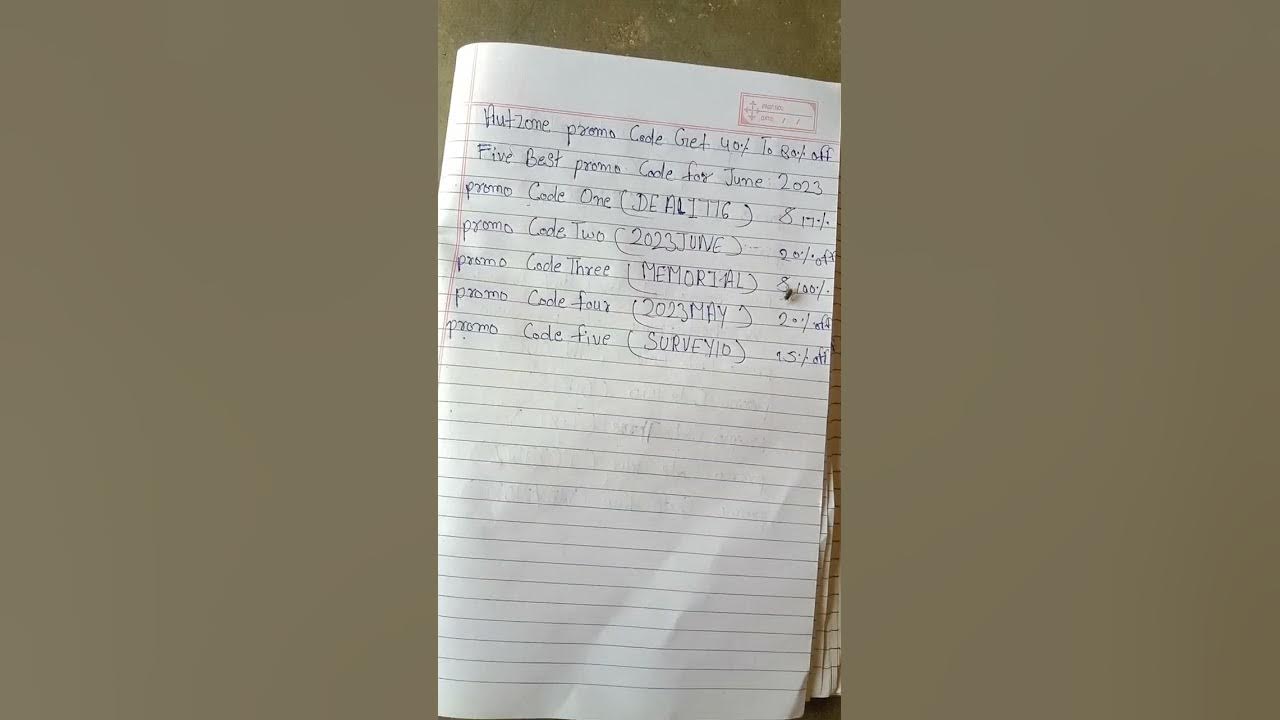 Autzone promo Code Get 40% To 80% off
Five Best promo Code for June 2023
promo Code One (DEALIT76) $ 17%
promo Code Two (2023JUNE) 20% off
promo Code Three (MEMORIAL) $ 100%
promo Code four (2023MAY) 20% off
promo Code five (SURVEY10) 15% off